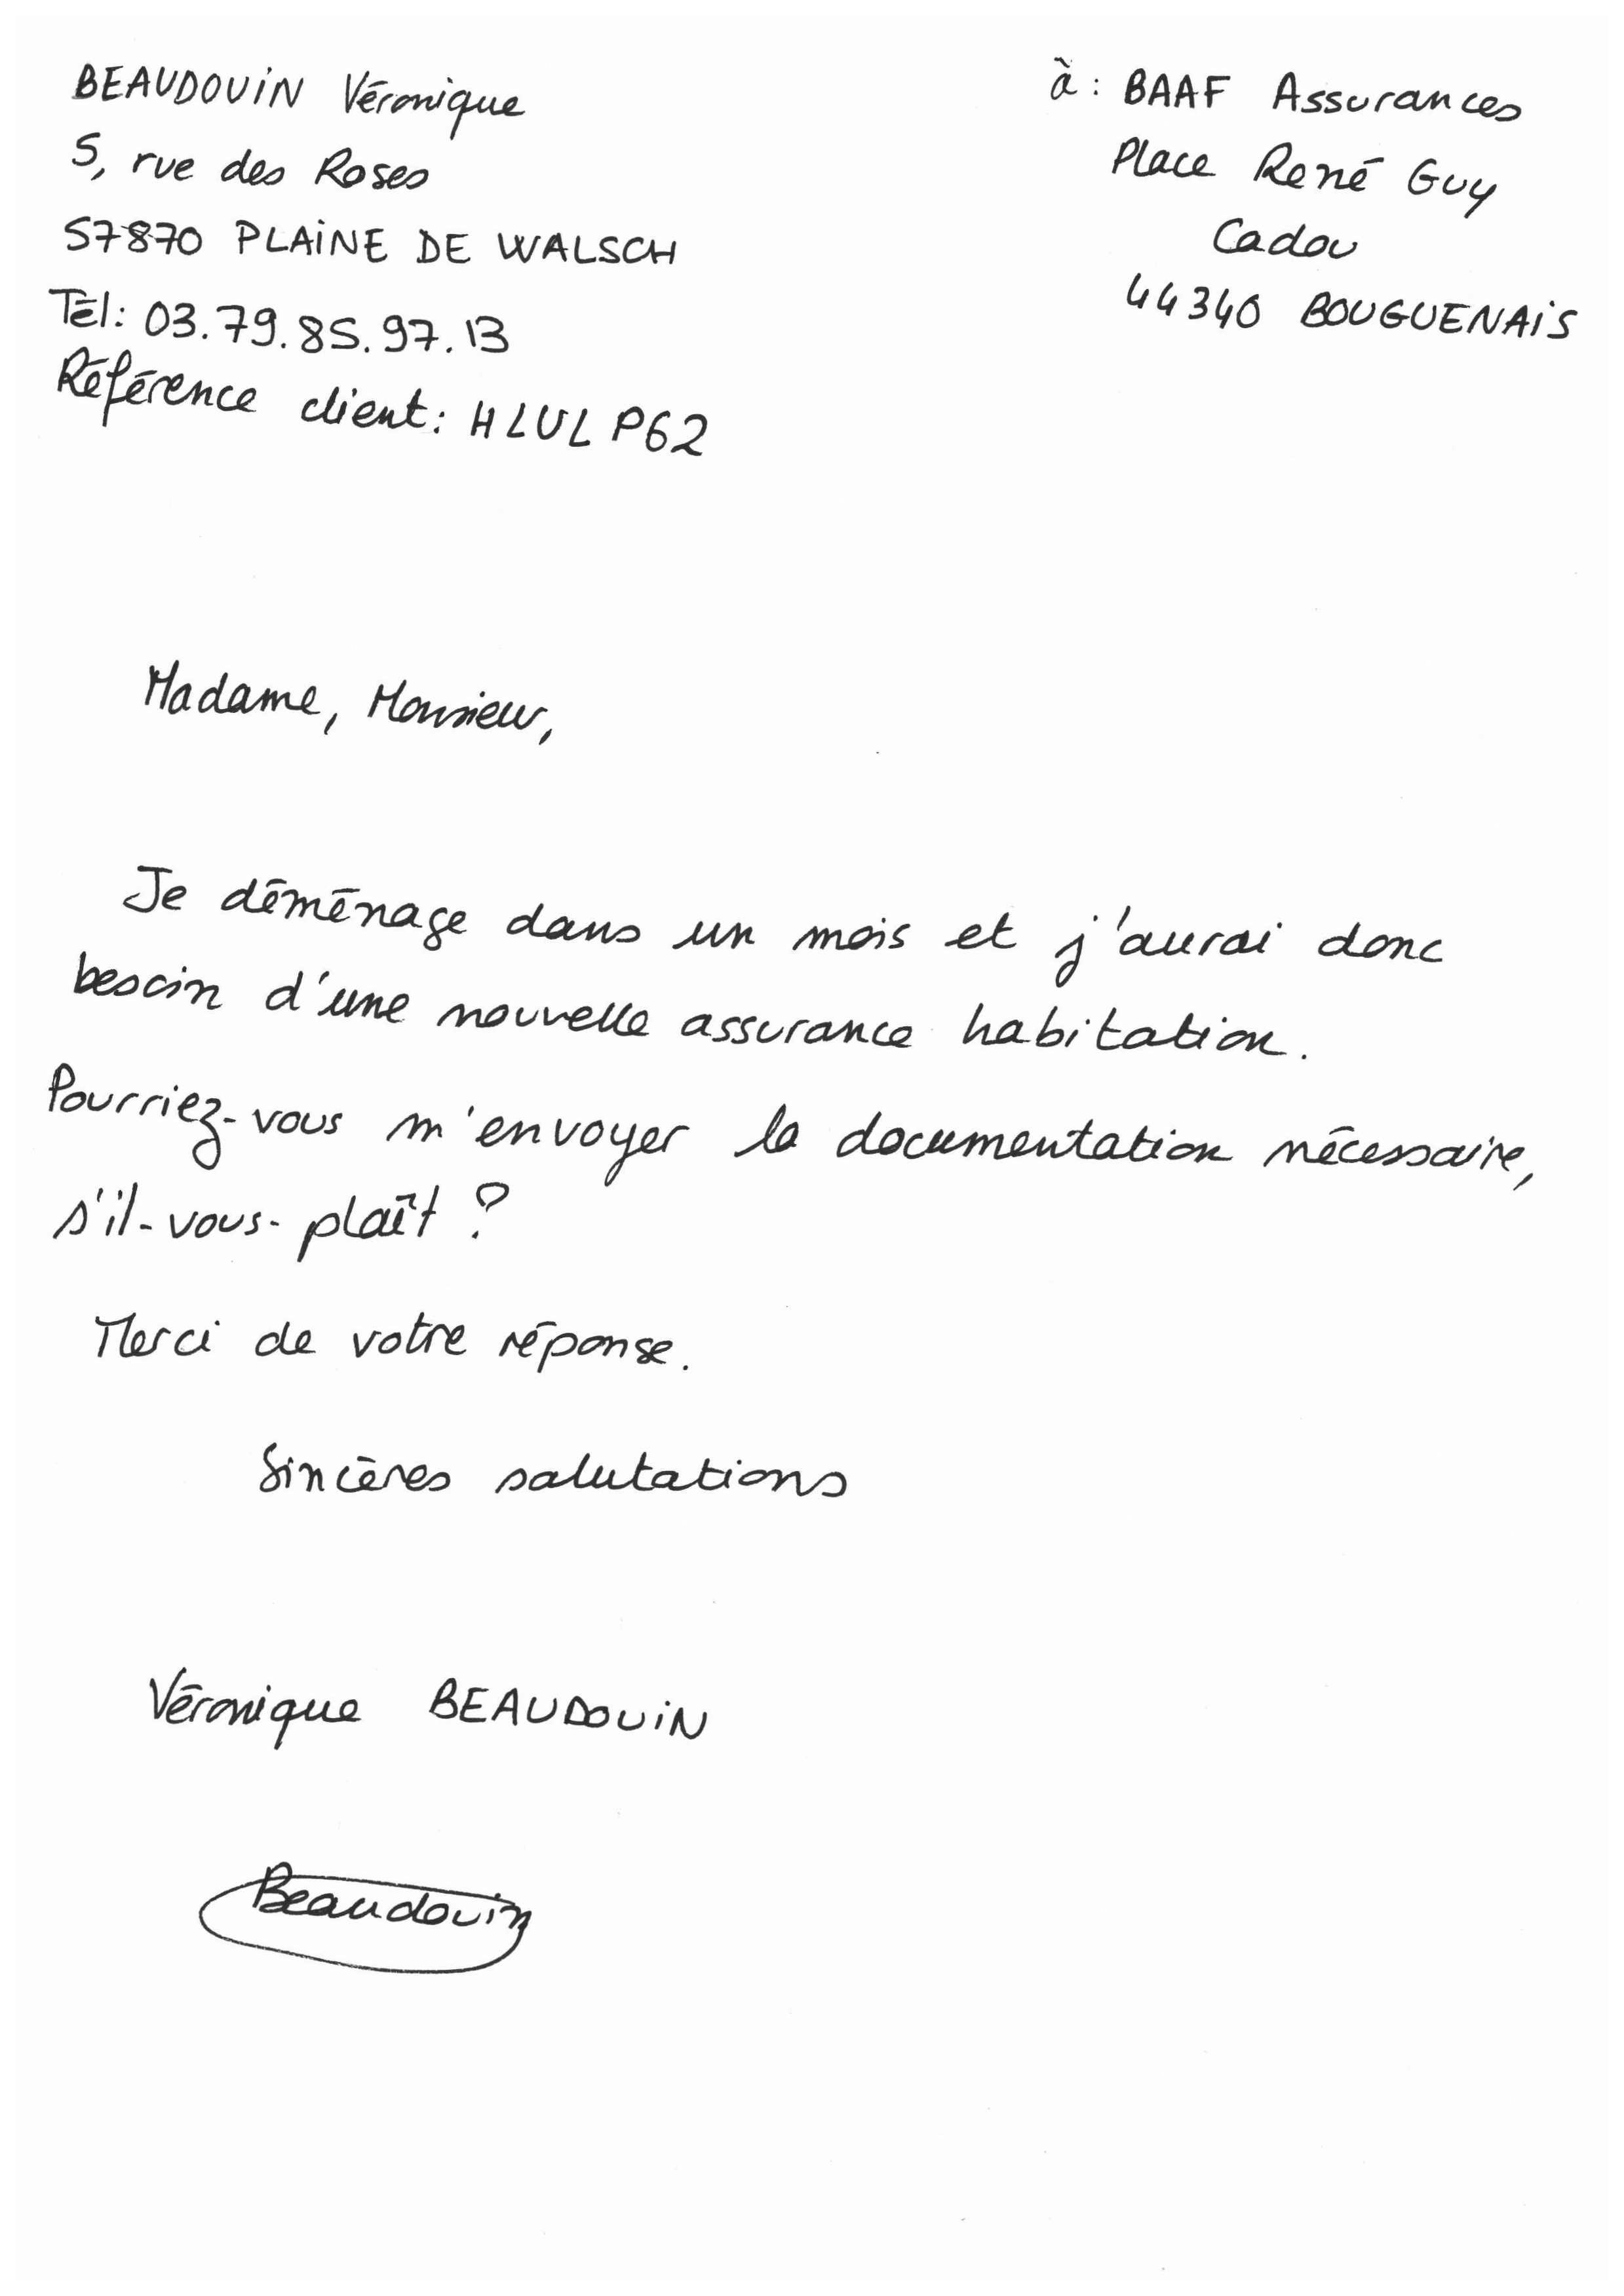 BEAUDOUIN Véronique
5, rue des Roses
57870 PLAINE DE WALSCH
Tél: 03.79.85.97.13
Référence client: HLULP62
à: BAAF Assurances
Place René Guy
Cadou
44340 BOUGUENAIS
Madame, Monsieur,
Je déménage dans un mois et j'aurai donc
besoin d'une nouvelle assurance habitation.
Pourriez-vous m'envoyer la documentation nécessaire,
s'il-vous-plaît ?
Merci de votre réponse.
Sincères salutations
Véronique BEAUDOUIN
Beaudouin